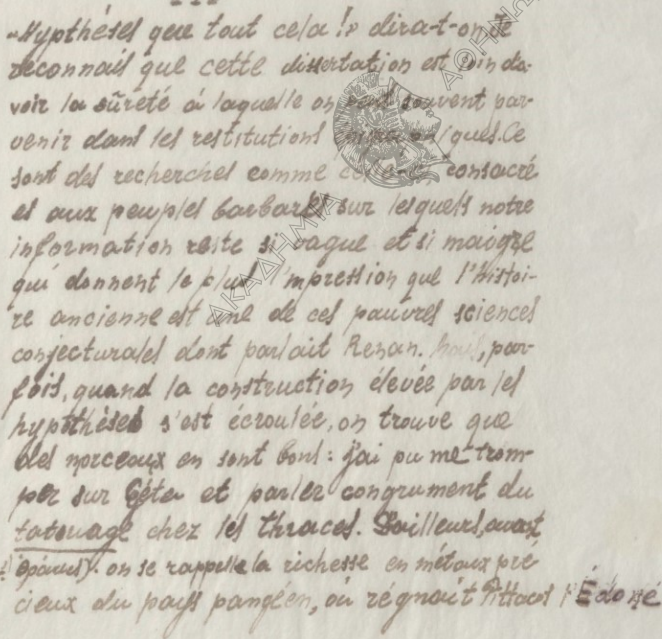 "Hypthéses que tout cela!» dira-t-on Je
reconnais que cette dissertation est loin da-
voir la sûreté á laquelle on peut souvent par-
venir dans les restitutions Ce
sont des recherches comme consacré
es aux peuples barbares sur lesquels notre
information reste si vague et si maigre
qui donnent le plus l'mpression que l'histoi-
re ancienne est une de ces pauvres sciences
conjecturales dont parlait Renan. Mais, par-
fois, quand la construction élevée par les
hypthéses s'est écroulée, on trouve que
des morceaux en sont bons: j'ai pu me trom-
per sur Géta et parler congrument du
tatouage chez les thraces. D'ailleurs, avant
on se rappelle la richesse en métaux pré
cieux du pays pangéen, où régnait Pittacos l'Édoné
ΑΚΑΔΗΜΙΑ
ΑΘΗΝ